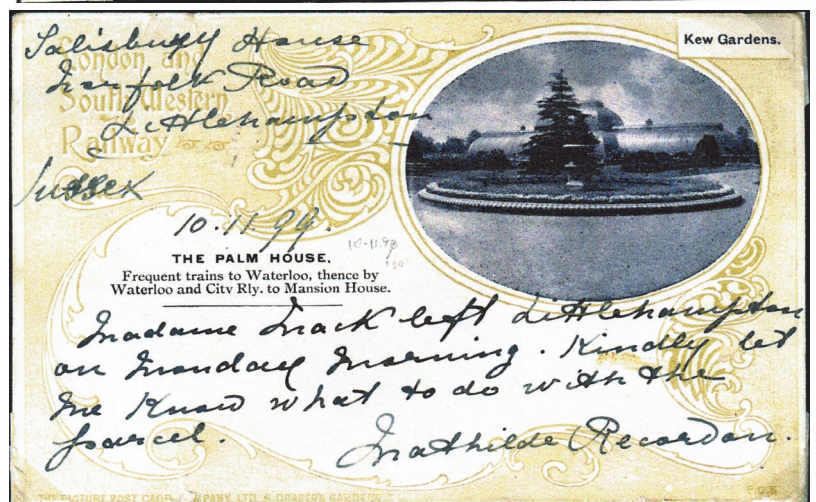 Salisbury House
London and
Norfolk Road
South Western
Littlehampton
Railway
Sussex
Kew Gardens.
10.11.99.
10-11.99
THE PALM HOUSE.
Frequent trains to Waterloo, thence by
Waterloo and City Rly. to Mansion House.
Madame Mack left Littlehampton
on Monday Morning. Kindly let
me Know what to do with the
parcel.
Mathilde Recordon.
THE PICTURE POST CARD COMPANY, LTD. 8 DRAPERS GARDENS